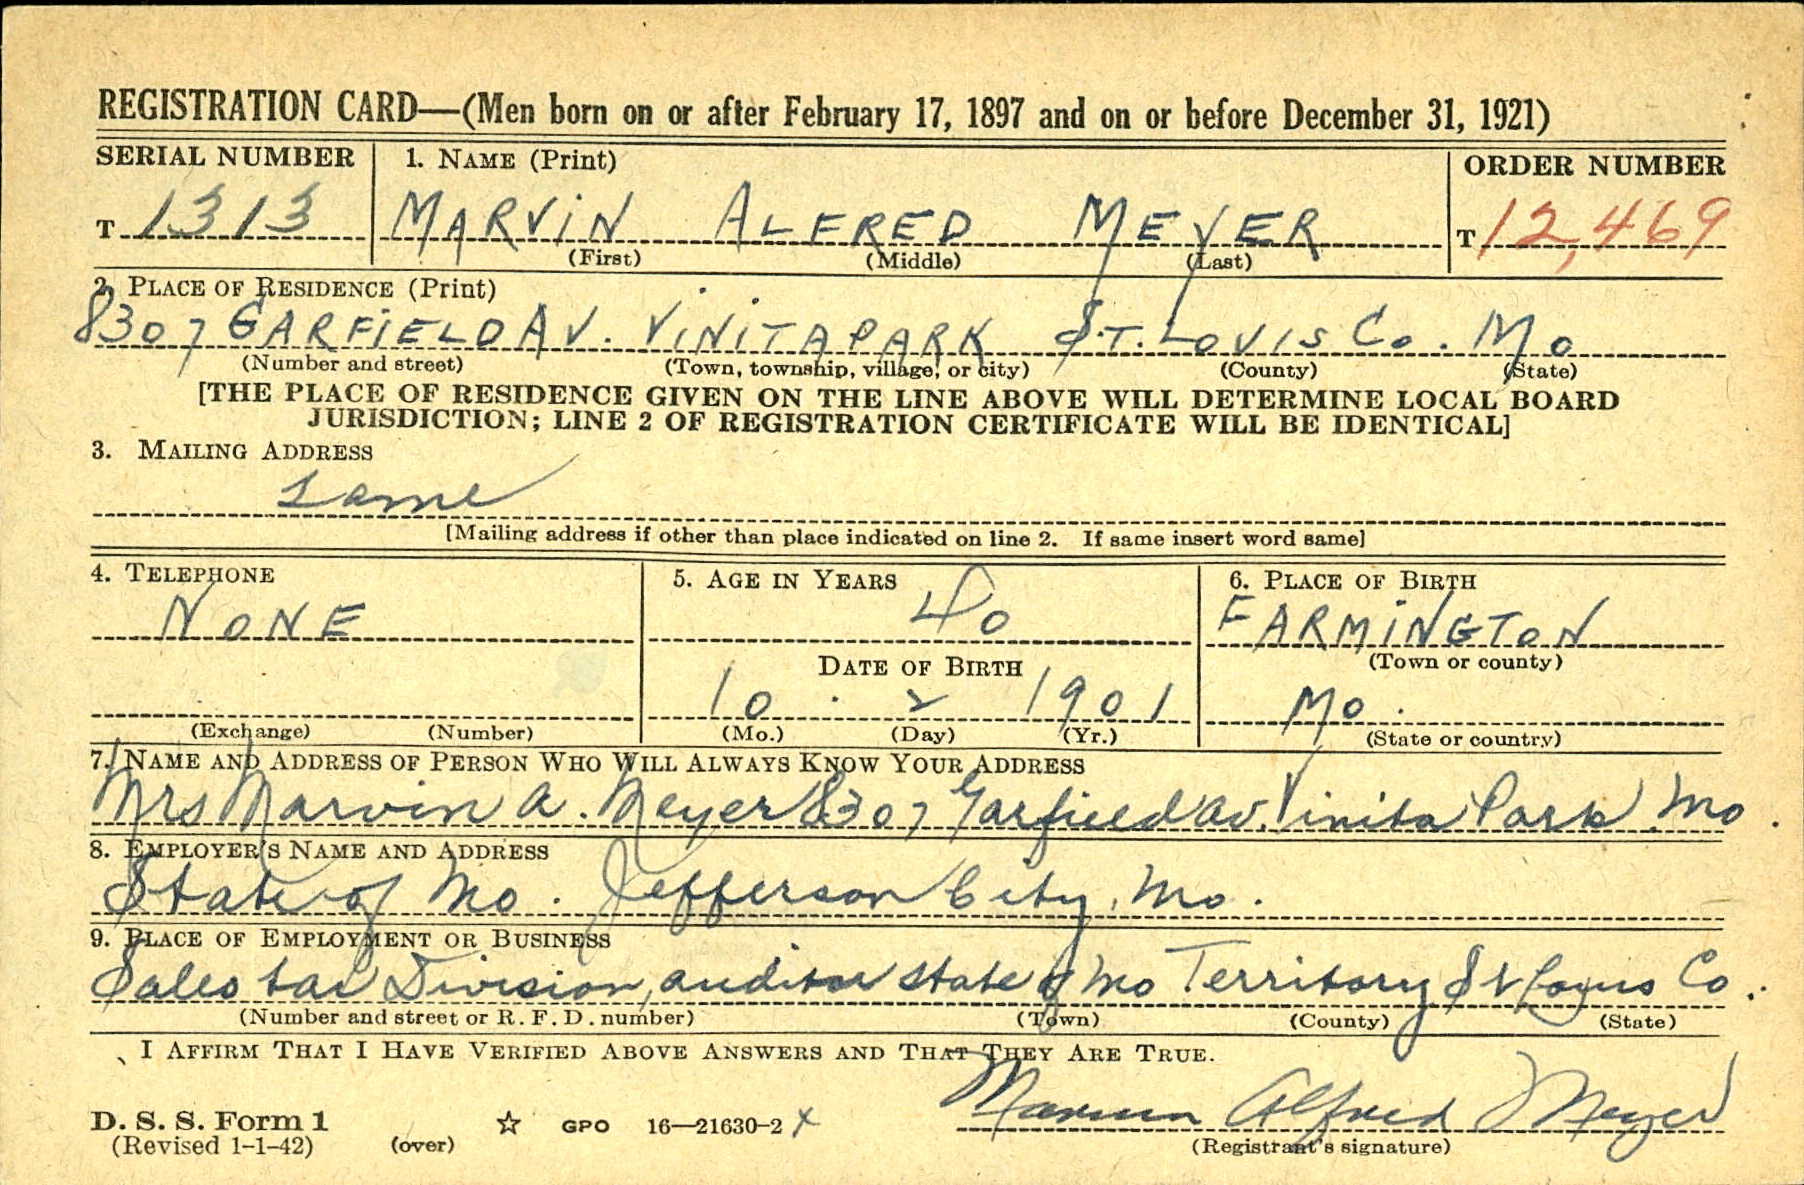 REGISTRATION CARD—(Men born on or after February 17, 1897 and on or before December 31, 1921)
SERIAL NUMBER 1. NAME (Print) ORDER NUMBER
T 1313 MARVIN ALFRED MEYER T 12,469
(First) (Middle) (Last)
2. PLACE OF RESIDENCE (Print)
8307 GARFIELD AV. VINITA PARK ST. LOUIS Co. Mo
(Number and street) (Town, township, village, or city) (County) (State)
[THE PLACE OF RESIDENCE GIVEN ON THE LINE ABOVE WILL DETERMINE LOCAL BOARD
JURISDICTION; LINE 2 OF REGISTRATION CERTIFICATE WILL BE IDENTICAL]
3. MAILING ADDRESS
Same
[Mailing address if other than place indicated on line 2. If same insert word same]
4. TELEPHONE 5. AGE IN YEARS 6. PLACE OF BIRTH
NONE 40 FARMINGTON
(Town or county)
DATE OF BIRTH
10 . 2 1901 Mo.
(Exchange) (Number) (Mo.) (Day) (Yr.) (State or country)
7. NAME AND ADDRESS OF PERSON WHO WILL ALWAYS KNOW YOUR ADDRESS
Mrs Marvin A. Meyer 8307 Garfield Av. Vinita Park Mo.
8. EMPLOYER'S NAME AND ADDRESS
State of Mo. Jefferson City, Mo.
9. PLACE OF EMPLOYMENT OR BUSINESS
Sales tax Division, auditor state of Mo Territory St Louis Co.
(Number and street or R. F. D. number) (Town) (County) (State)
I AFFIRM THAT I HAVE VERIFIED ABOVE ANSWERS AND THAT THEY ARE TRUE.
Marvin Alfred Meyer
D. S. S. Form 1
(Revised 1-1-42) (over) ☆ GPO 16—21630-2 (Registrant's signature)